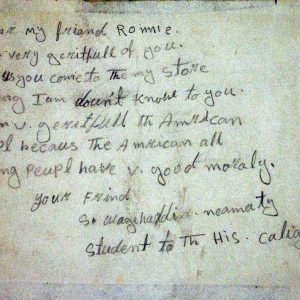 ar my friend Ronnie.
very geritfull of you.
us you come to the my store
ng I am don't Know to you.
m v. geritfull th Amrican
pl becaus the Amrican all
ng peupl have v. good moraly.
your Frind
S. wagihaddin. naamaty
Student to Th His. calia